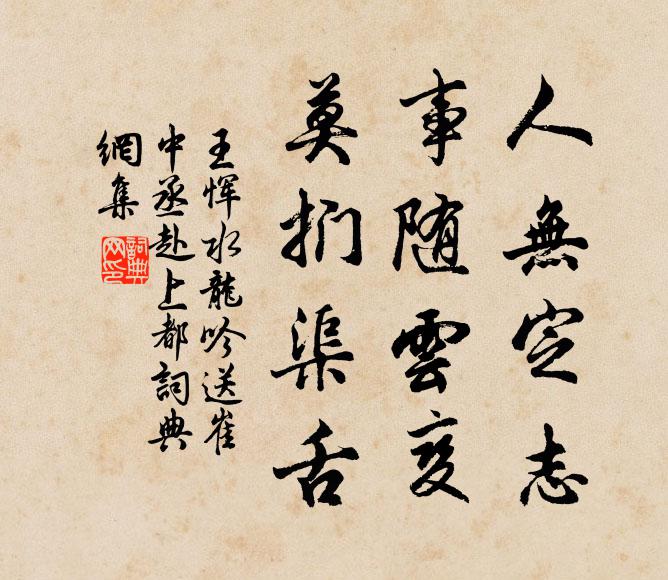 人無定志
事随雲变
莫捫渠舌
王惲水龍吟送崔
中丞赴上都詞典
網集
詞典
网印